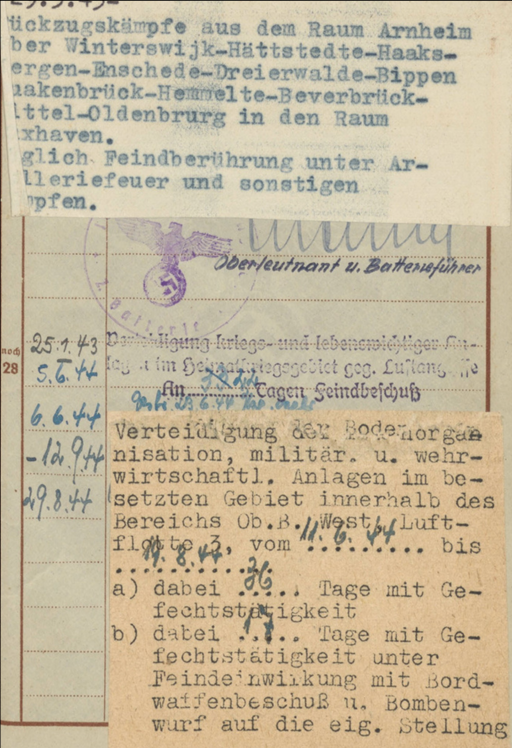 29.3.45-
ückzugskämpfe aus dem Raum Arnheim
ber Winterswijk-Hättstedte-Haaks-
ergen-Enschede-Dreierwalde-Bippen
uakenbrück-Hemmelte-Beverbrück-
ittel-Oldenbrurg in den Raum
xhaven.
glich Feindberührung unter Ar-
lleriefeuer und sonstigen
mpfen.
Oberleutnant u. Batterieführer
Batterie
noch
28
25.1.43 Verteidigung kriegs- und lebenswichtiger An-
5.6.44 lagen im Heimatkriegsgebiet geg. Luftangriffe
An Tagen Feindbeschuß
6.6.44
-12.9.44
29.8.44
Verteidigung der Bodenorgan
nisation, militär. u. wehr-
wirtschaftl. Anlagen im be-
setzten Gebiet innerhalb des
Bereichs Ob.B. West, Luft-
flotte 3, vom 11.6.44 bis
19.8.44
a) dabei 36 Tage mit Ge-
fechtstätigkeit
b) dabei 17 Tage mit Ge-
fechtstätigkeit unter
Feindeinwirkung mit Bord-
waffenbeschuß u. Bomben-
wurf auf die eig. Stellung